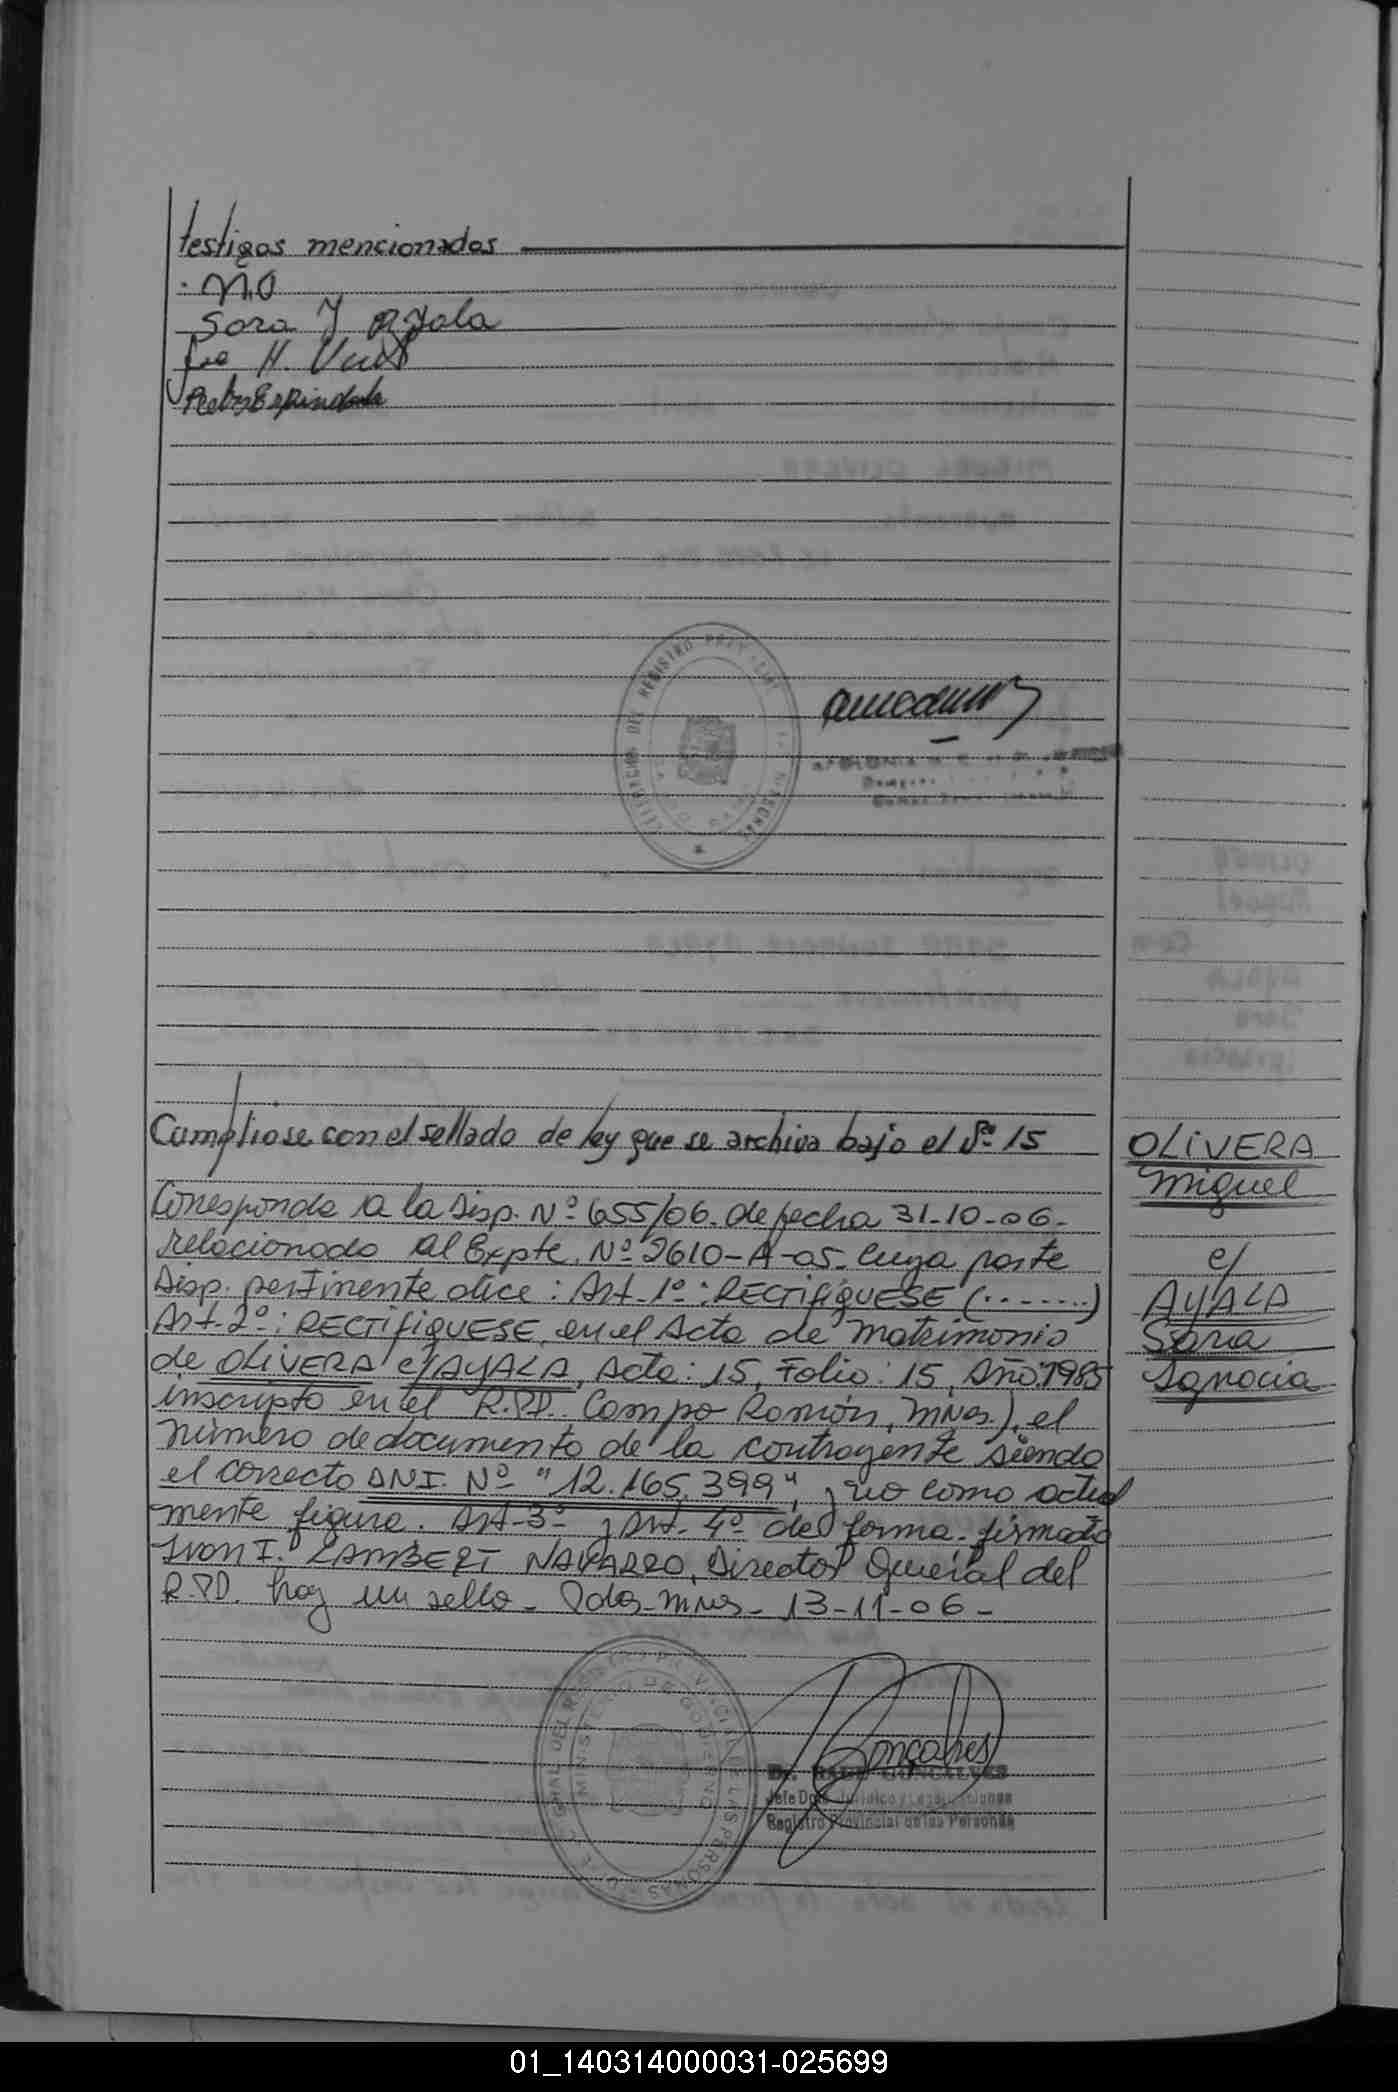 testigos mencionados
M.O
Sara Y ayala
H.
Pedro Espindola
DEL REGISTRO PROVINCIAL
Cumpliose con el sellado de ley que se archiva bajo el Nº 15
OLIVERA
Miguel
c/
AYALA
Sara
Ignacia
Corresponde a la Disp. Nº 655/06. de fecha 31-10-06-
relacionado al Expte. Nº 2610-A-05- cuya parte
Disp. pertinente dice: Art-1º: RECTIFIQUESE (.......)
Art-2º: RECTIFIQUESE, en el Acta de Matrimonio
de OLIVERA c/AYALA, Acta: 15, Folio: 15, Año: 1985
inscripto en el R.P.P. Campo Ramón, Mnes.), el
número de documento de la contrayente siendo
el correcto DNI. Nº "12.165.399", y no como actual
mente figura. Art-3º y Art-4º de forma-firmado
Ivon I. LAMBERT NAVARRO, Director General del
R.P.P. hay un sello- Pdas-Mnes- 13-11-06-
GRAL DEL REGISTRO PROVINCIAL DE LAS PERSONAS
MINISTERIO DE GOBIERNO
Gonçalves
Dr. RAUL GONCALVES
Jefe Dpto. Jurídico y
Registro Provincial de las Personas
01_140314000031-025699